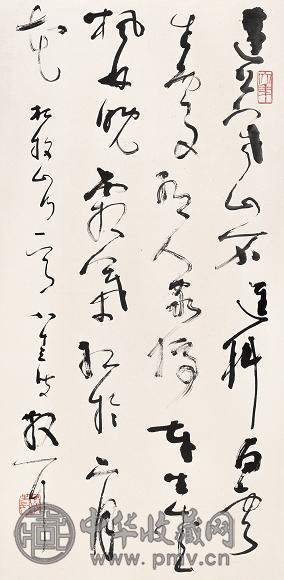 遠上寒山石逕斜白雲
生處有人家停車坐愛
楓林晚霜葉紅於二月
花 杜牧山行一首 散耳
中华收藏网
www.pmcv.cn